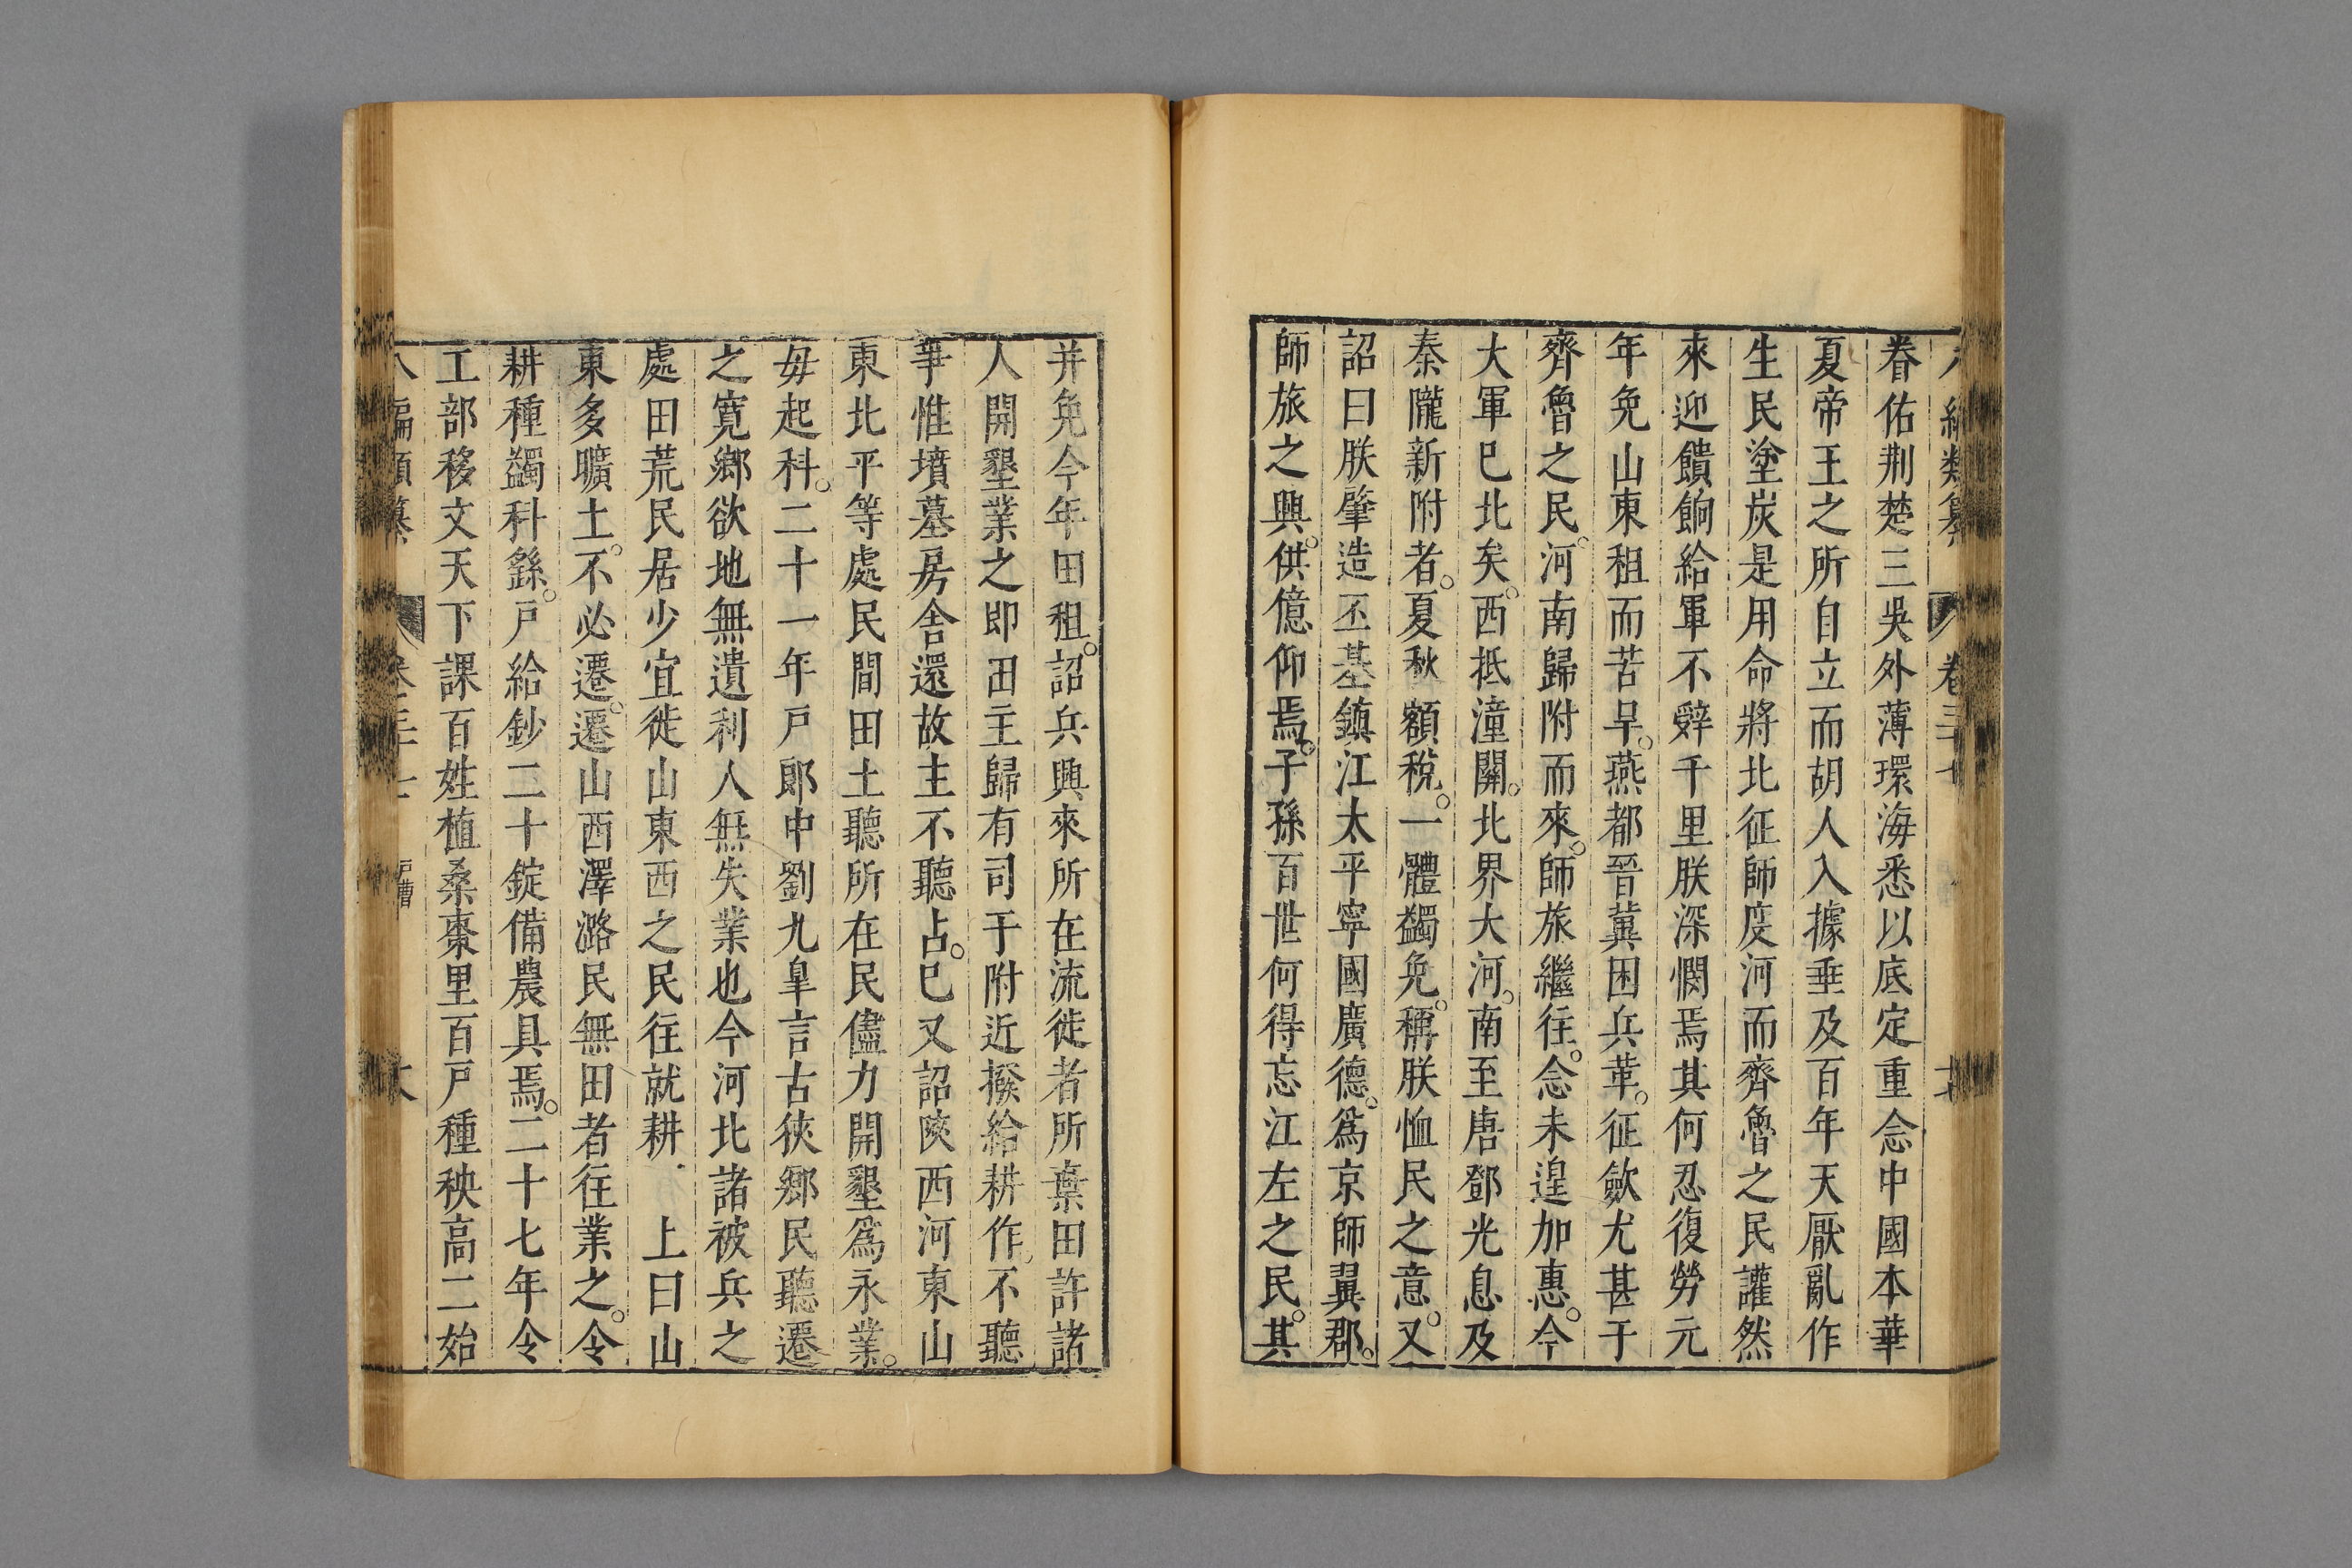 編類纂 卷三十七
眷佑荆楚三吳外薄環海悉以底定重念中國本華
夏帝王之所自立而胡人入據垂及百年天厭亂作
生民塗炭是用命將北征師度河而齊魯之民讙然
來迎饋餉給軍不辤千里朕深憫焉其何忍復勞元
年免山東租而苦旱。燕都晉冀困兵革。征歛尤甚于
齊魯之民。河南歸附而來。師旅繼徃。念未遑加惠。今
大軍巳北矣。西抵潼關。北界大河。南至唐鄧光息及
秦隴新附者。夏秋額稅。一體蠲免。稱朕恤民之意。又
詔曰朕肇造丕基鎮江太平寧國廣德。爲京師翼郡。
師旅之興。供億仰焉。子孫百世何得忘江左之民。其
并免今年田租。詔兵興來所在流徙者所棄田許諸
人開墾業之即田主歸有司于附近撥給耕作不聽
爭惟墳墓房舍還故主不聽占。巳又詔陝西河東山
東北平等處民間田土聽所在民儘力開墾爲永業。
毋起科。二十一年戸郎中劉九皐言古狹鄉民聽遷
之寬鄉欲地無遺利人無失業也今河北諸被兵之
處田荒民居少宜徙山東西之民往就耕 上曰山
東多曠土。不必遷。遷山西澤潞民無田者徃業之。令
耕種蠲科繇。戸給鈔二十錠備農具焉。二十七年令
工部移文天下課百姓植桑棗里百戸種秧高二始
八編類纂 卷三十七 戸曹